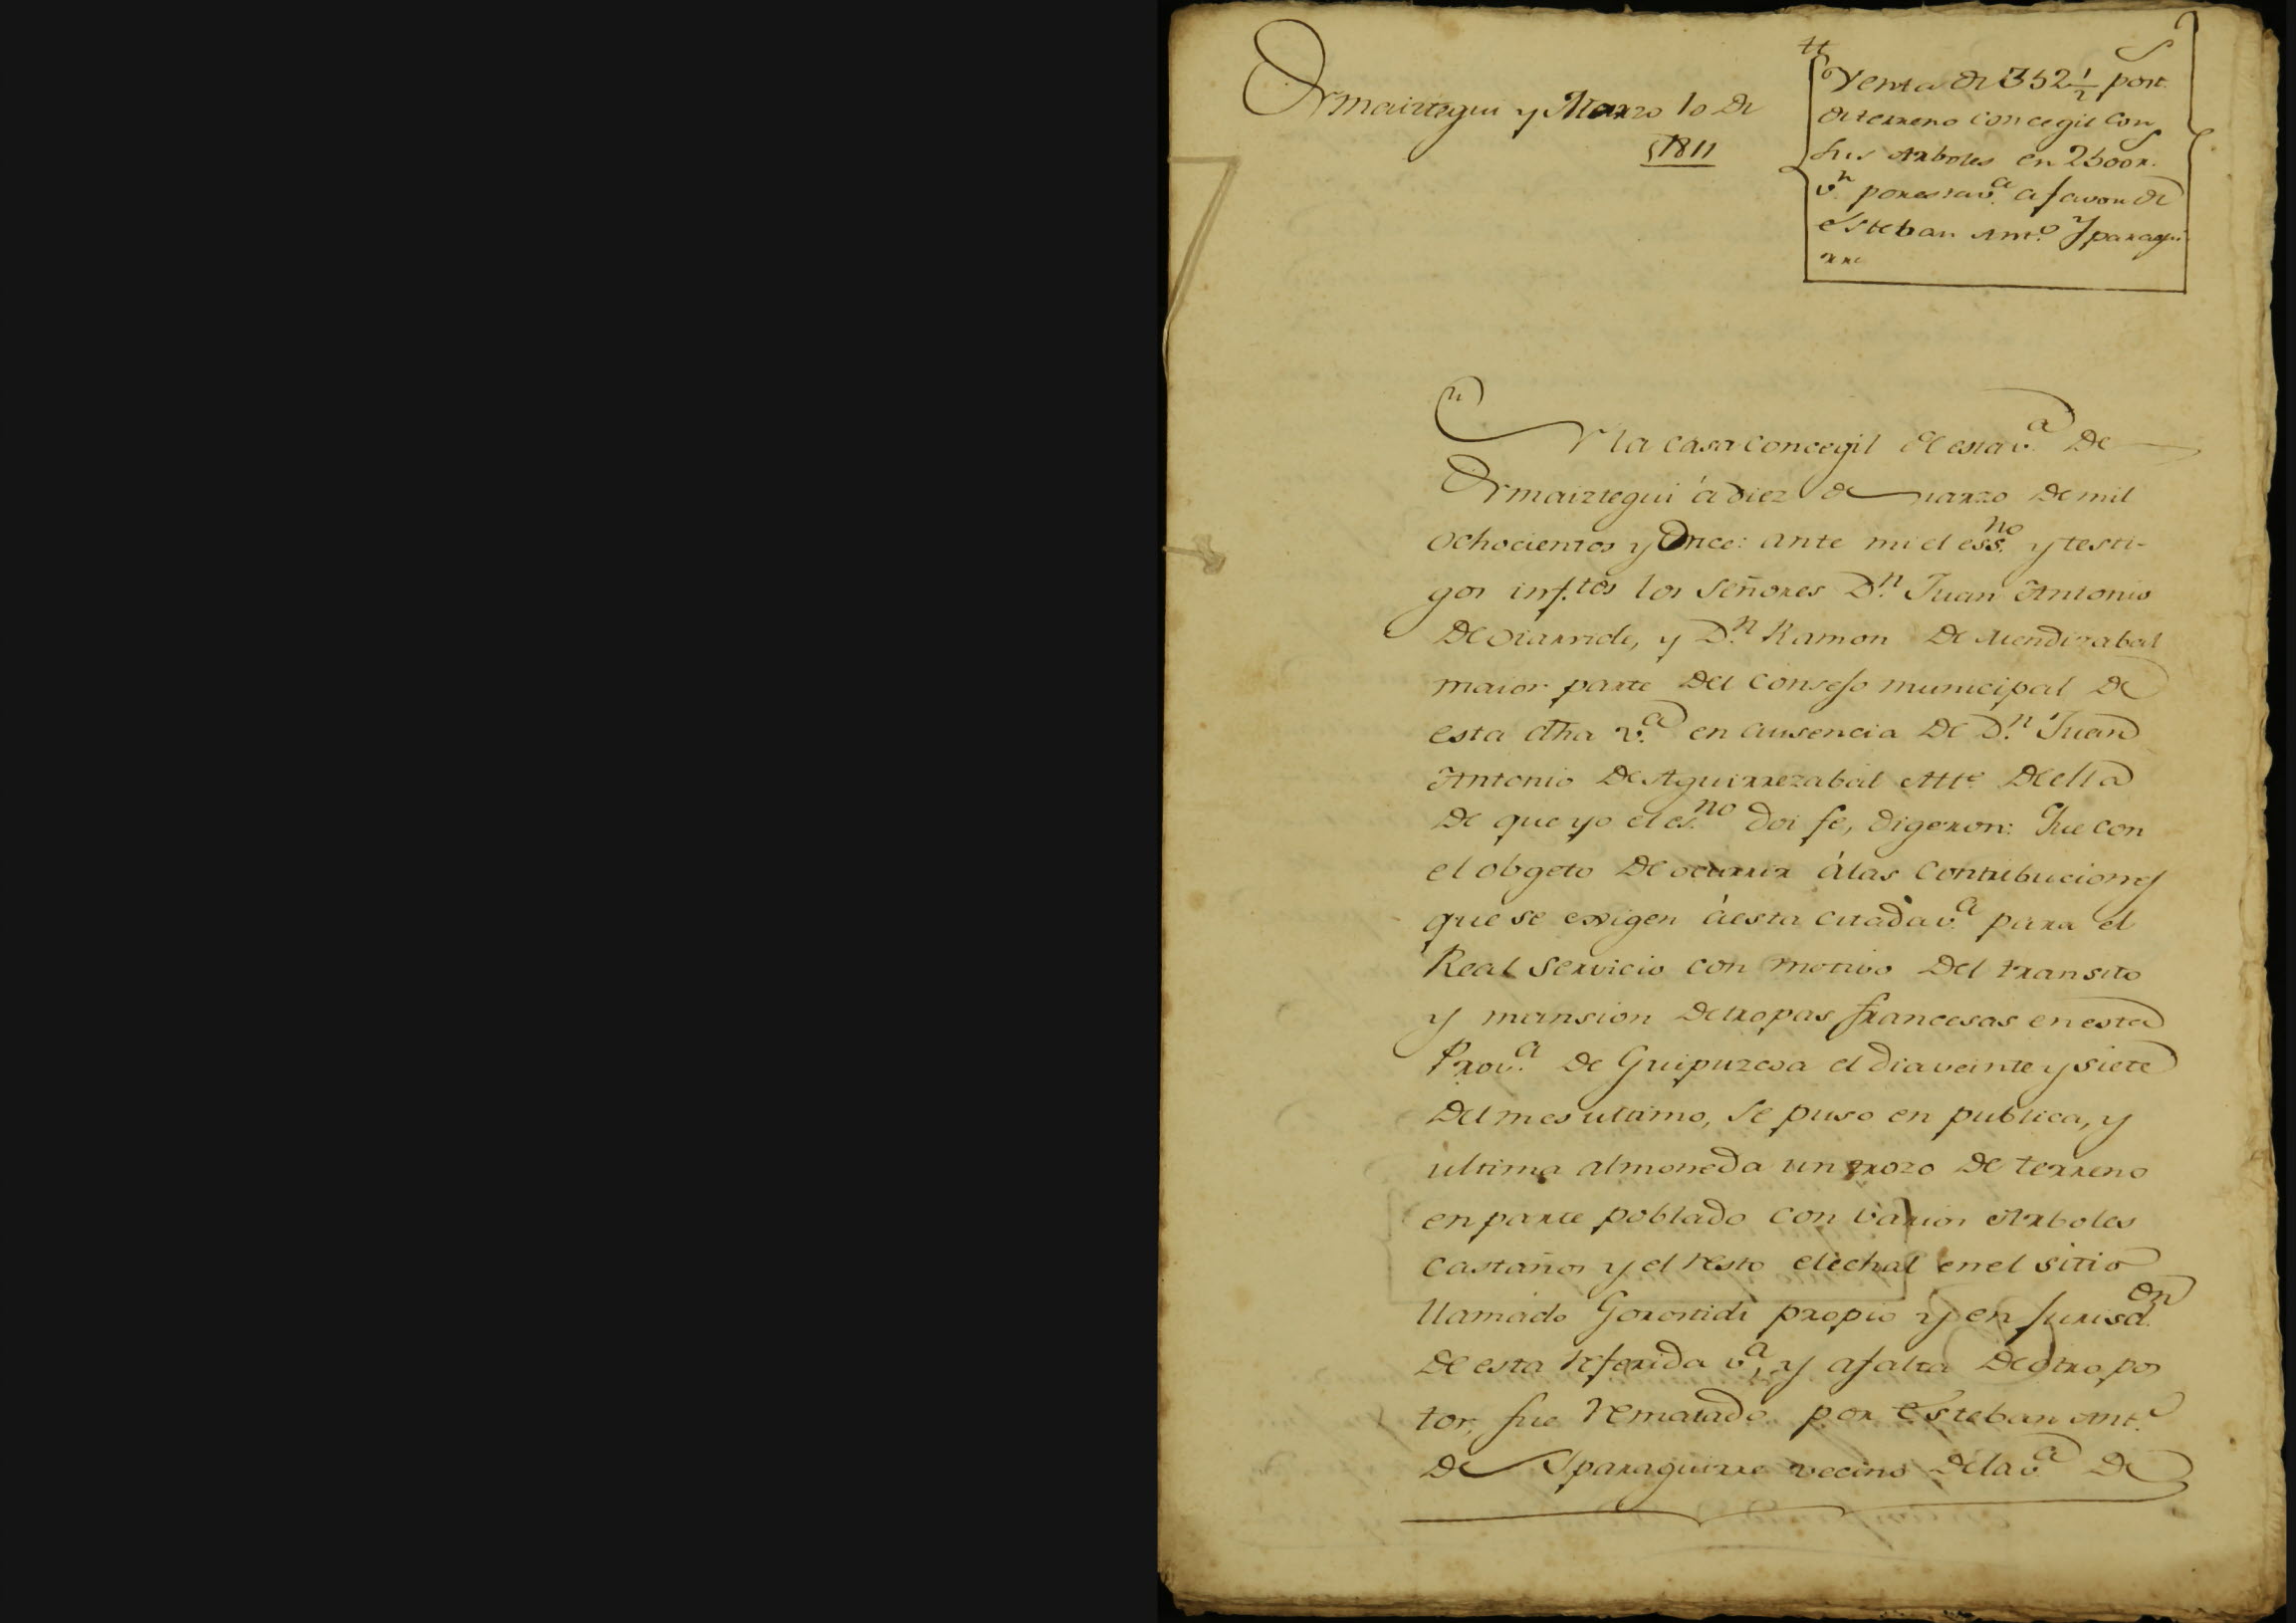 Ormaiztegui y Marzo 10 de
1811
Venta de 352 1/2 post.s
de terreno concegil con
sus Arboles en 2500 r.s
v.n por esta v.a a favor de
Esteban Ant.o Yparagui
rre
En la casa concegil de esta v.a de
Ormaiztegui á diez de marzo de mil
ochocientos y Once: ante mi el ess.no y testi-
gos inf.tos los Señores D.n Juan Antonio
de Oiarvide, y D.n Ramon de Mendizabal
maior parte del consejo municipal de
esta dha v.a en ausencia de D.n Juan
Antonio de Aguirrezabal Alt.e de ella
de que yo el es.no doi fe, digeron: Que con
el obgeto de ocurrir á las contribuciones
que se exigen á esta citada v.a para el
Real servicio con motivo del transito
y mansion de tropas francesas en esta
Prov.a de Guipuzcoa el dia veinte y siete
del mes ultimo, se puso en publica, y
ultima almoneda un trozo de terreno
en parte poblado con varios Arboles
castaños y el resto elechal en el sitio
llamado Gorostidi propio y en jurisd.on
de esta referida v.a, y a falta de otro pos
tor, fue rematado por Esteban Ant.o
de Yparaguirre vecino de la v.a de